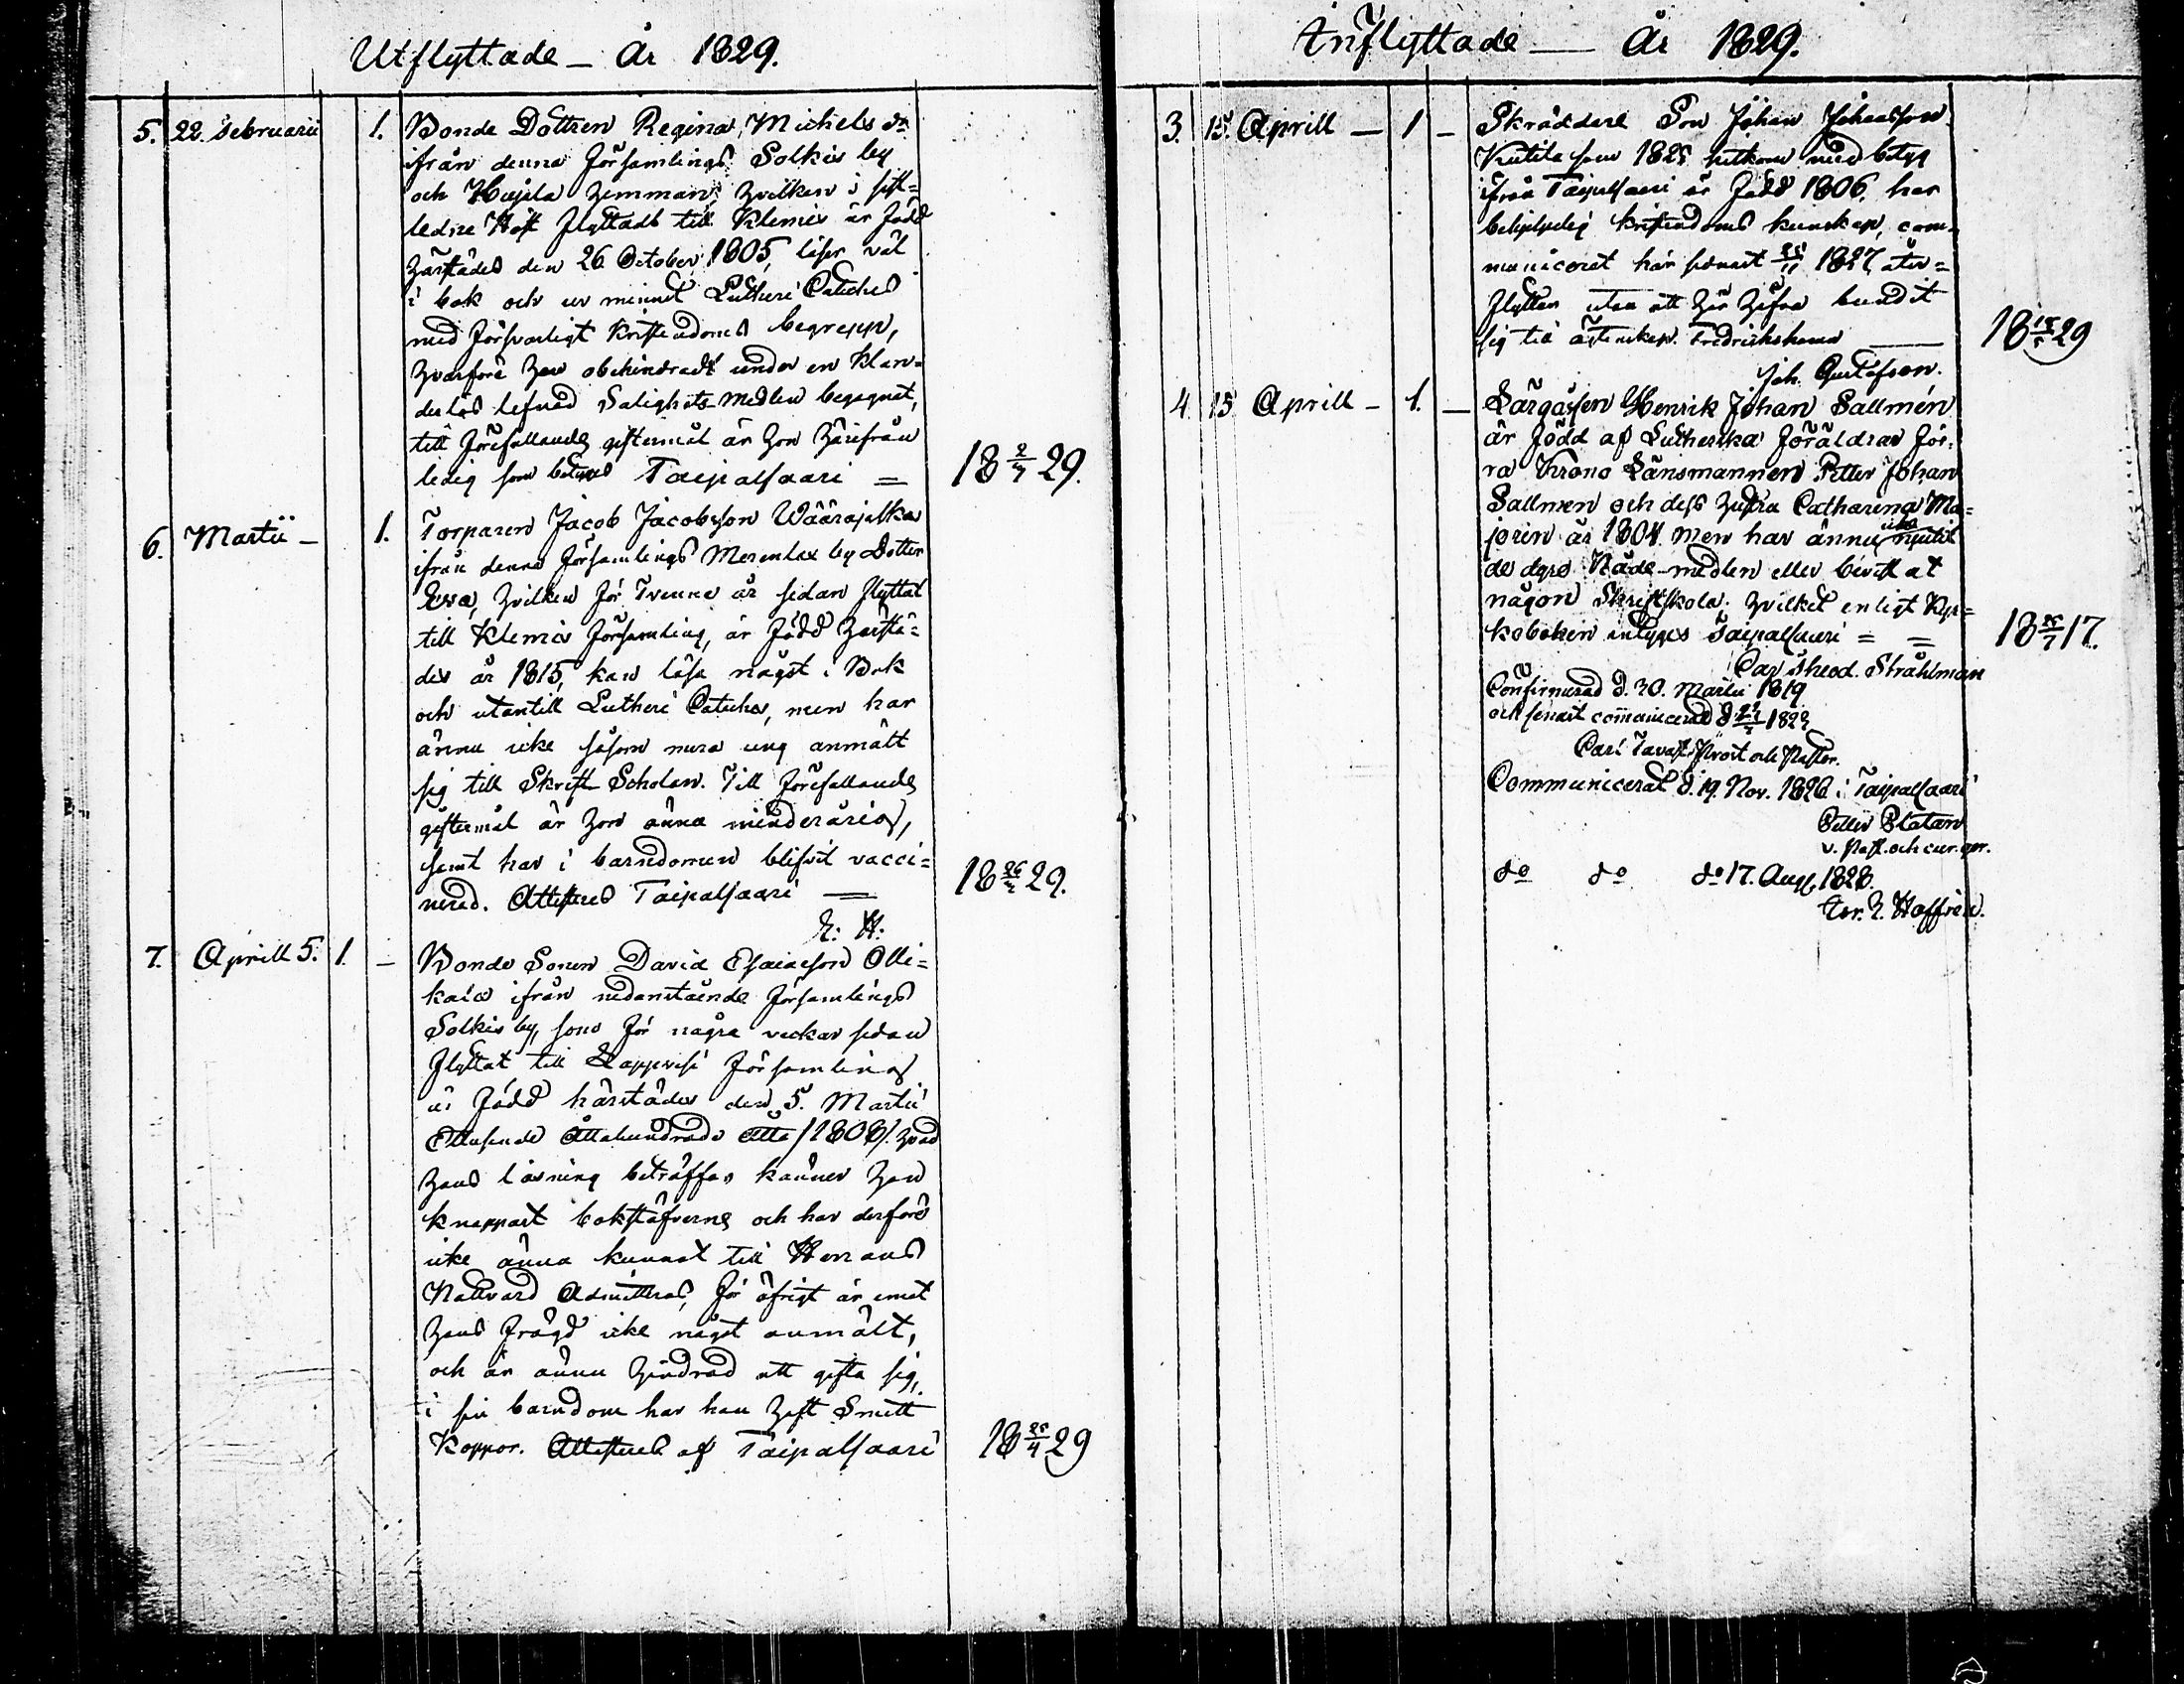 Utflyttade - År 1829.
5. 22 Februarii 1. Bonde Dottren Regina Michels dr
ifrån denna Församlings Solkis by
och hemman, hvilken i sist-
ledne Höst flyttade till Klemis är född
härstädes den 26 October 1805, läser väl
i bok och ur minnet Lutheri Cateches
med försvarligt Kristendoms begrepp,
hvarföre hon obehindradt under en klan-
derlös lefnad Salighets-Medlen begagnat,
till förefallande giftermål är hon härifrån
ledig som betygas Taipalsaari = 18 2/4 29.
6. Martii - 1. Torparen Jacob Jacobsson Wääräjalka
ifrån denna Församlings Merenlax by Dotter
Eva, hvilken för Tvenne år sedan flyttat
till Klemis Församling, är född härstä-
des år 1815, kan läsa något i Bok
och utantill Lutheri Cateches, men har
ännu icke såsom nura ung anmält
sig till Skrift Scholan. Till förefallande
giftermål är hon ännu minderårig,
samt har i barndomen blifvit vacci-
nered. Attesteras Taipalsaari — 18 26/4 29.
E: H:
7. Aprill 5. 1. - Bonde Sonen David Esaiasson Olli-
kain ifrån nedanstående Församlings
Solkis by, som för några veckor sedan
flyttat till Lappvesi Församling
är född härstädes den 5. Martii
Ettusende Åttahundrade Åtta /1808/. hvad
hans läsning beträffar känner han
knappast bokstäfverne och har derföre
icke ännu kunnat till Herrans
Nattvard Admitteras, för öfrigt är emot
hans frägd icke något anmält,
och är ännu hindrad att gifta sig,
i sin barndom har han haft Smitt
Koppor. Attesteras af Taipalsaari 18 25/4 29
Inflyttade — År 1829.
3. 15. Aprill — 1 - Skräddare Son Johan Johansson
Kutila som 1825 hitkom med betyg
ifrån Taipalsaari är född 1806, har
behjelpelig kristendoms kunskap, com-
municerat här senast 25/11 1827, åter-
flyttar utan att här hafva bundit
sig till ägtenskap. Fredrichshamn — 18 15/ 29
Joh. Gustafson.
4. 15 Aprill - 1. - Färgaren Henrik Johan Sallmén
är född af Lutherska Föräldrar för-
ra Krono Länsmannen Petter Johan
Sallmen och dess hustru Catharina Ma-
jorin år 1804. Men har ännu icke njutit
de dyra Nåde-medlen eller bivistat
någon Skriftskola; hvilket enligt Kyr-
koboken intygas Taipalsaari = = 18 26/7 17.
Carl Theod. Stråhlman
Confirmerad d. 30. Martii 1819
och senast communicerad d. 1822
Carl Tavast Prost och Pastor.
Communicerat d. 19. Nov. 1826 i Taipalsaari
Petter Platan
v. Past. och cur. ger.
do do do 17. Aug. 1828.
Er. J. Hoffrén.